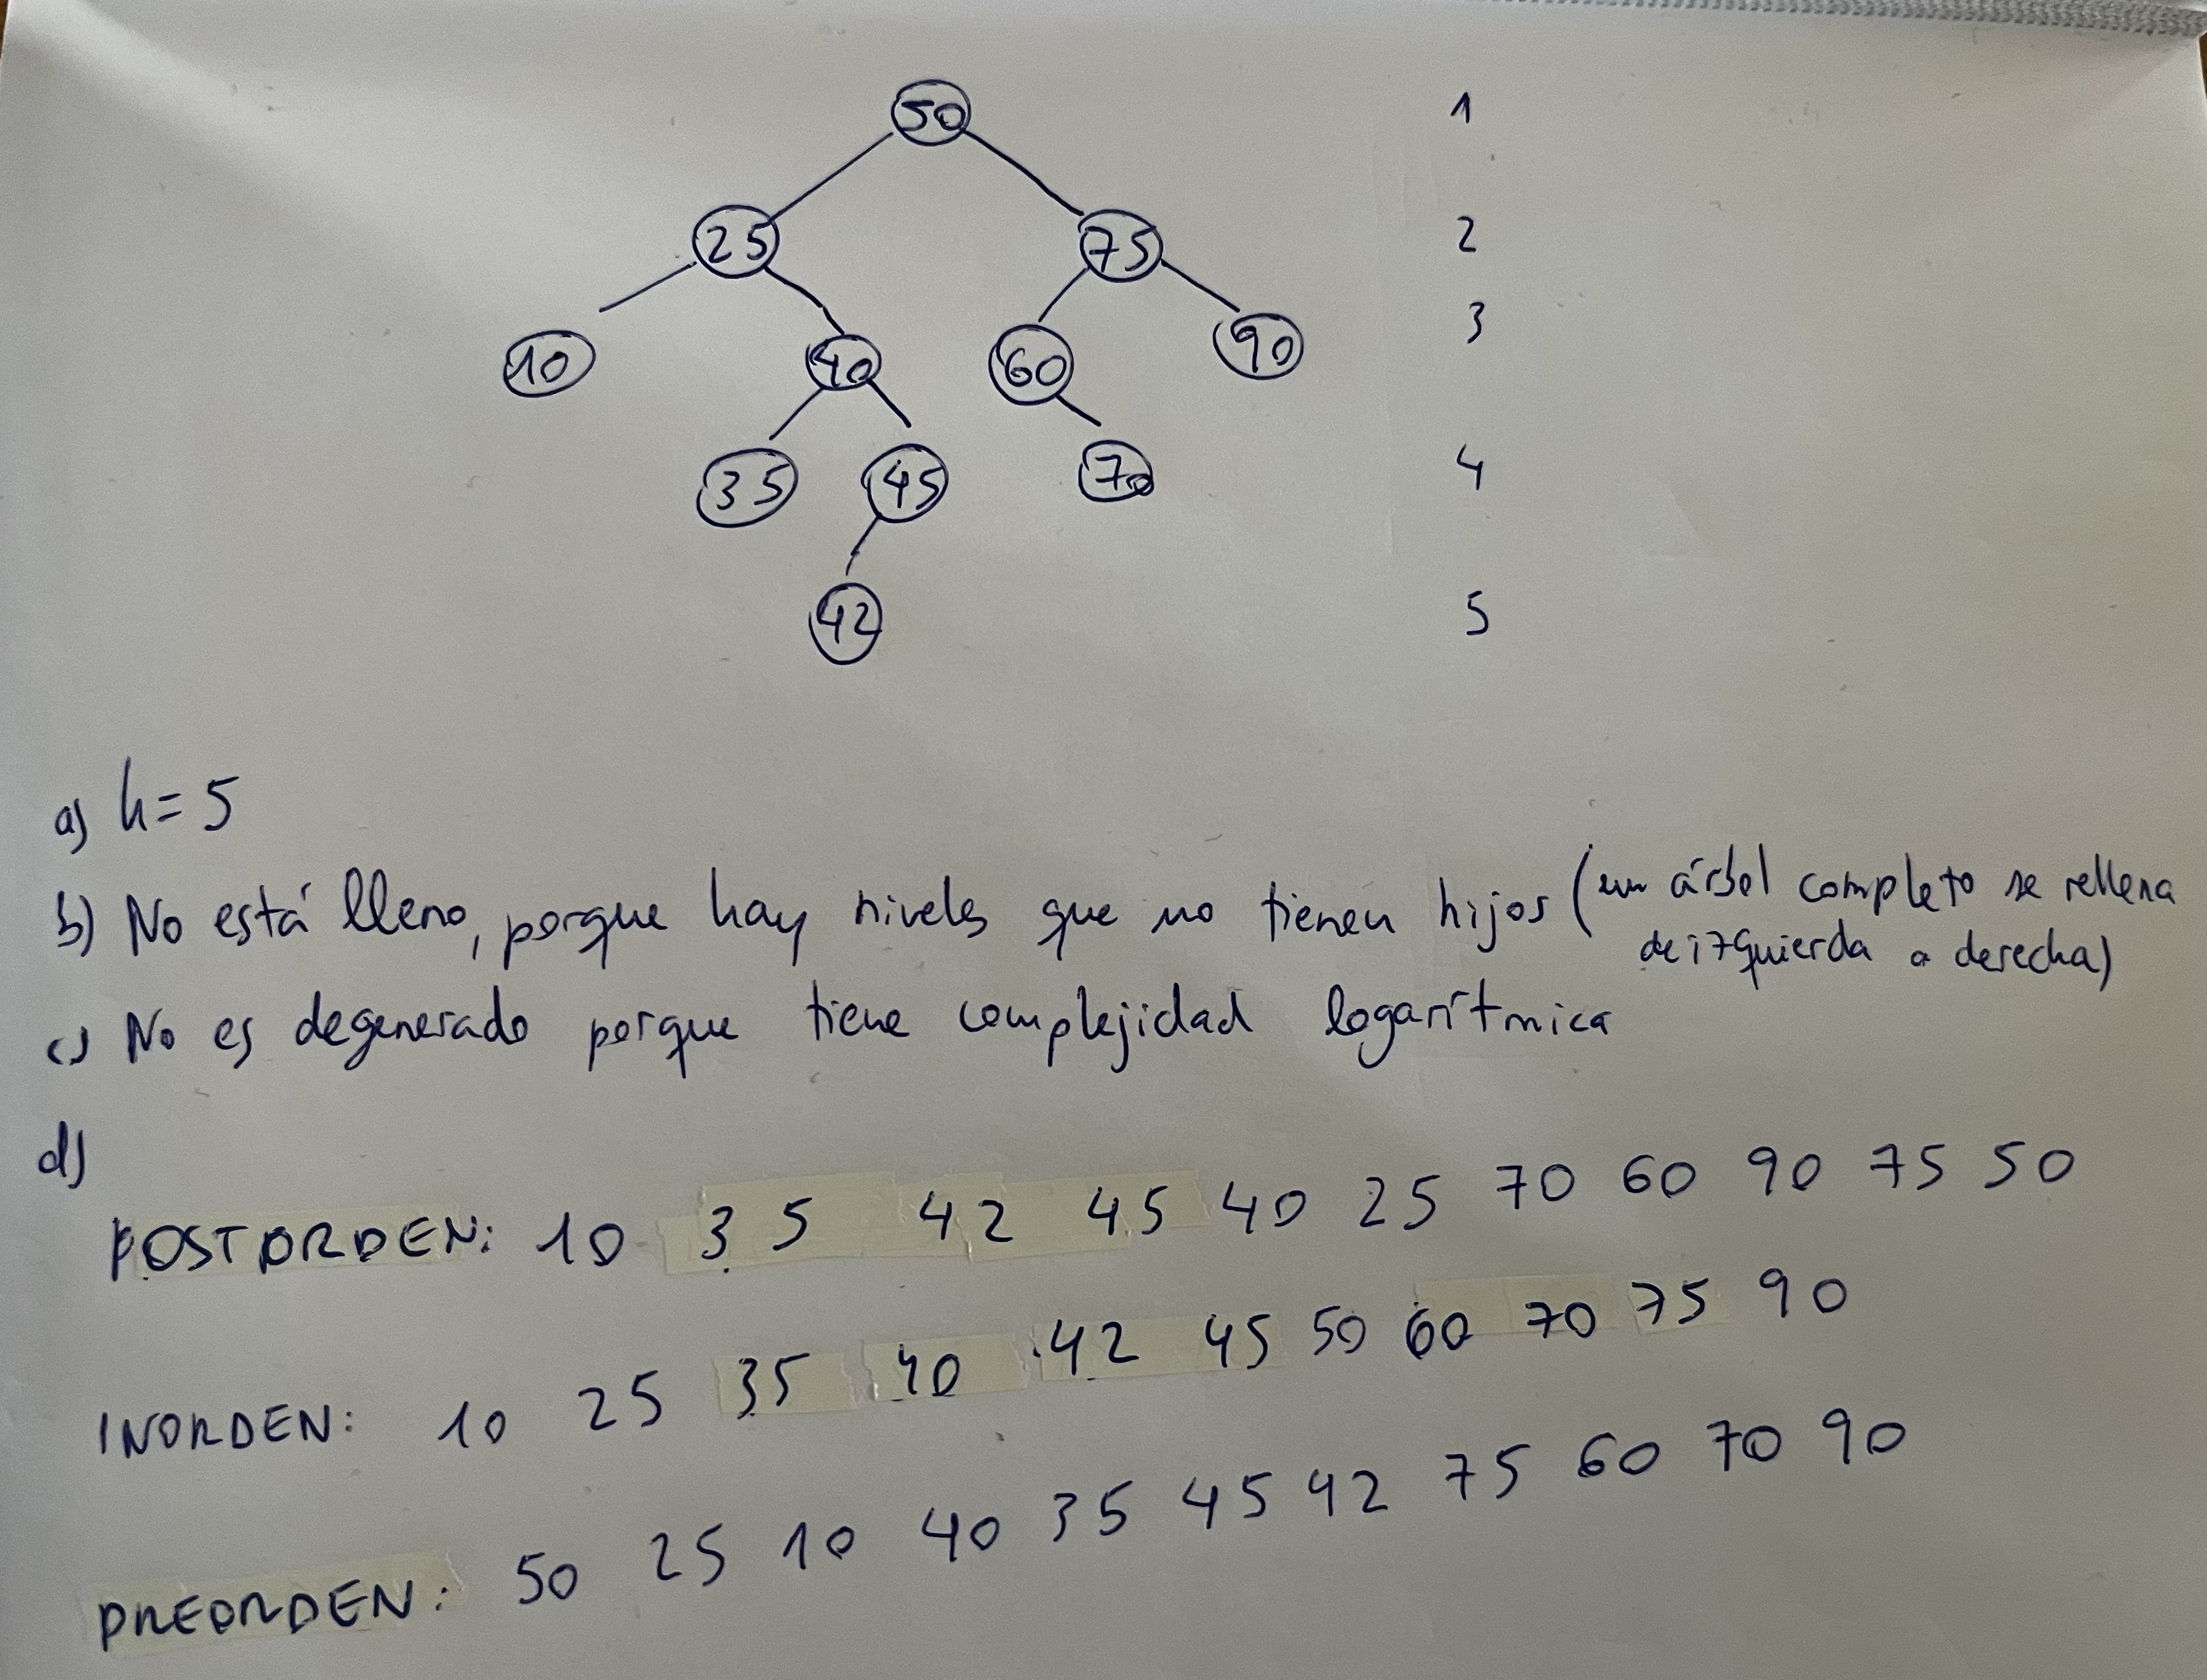 50 1
25 75 2
10 40 60 90 3
35 45 70 4
42 5
a) h = 5
b) No está lleno, porque hay niveles que no tienen hijos (un árbol completo se rellena
de izquierda a derecha)
c) No es degenerado porque tiene complejidad logarítmica
d)
POSTORDEN: 10 35 42 45 40 25 70 60 90 75 50
INORDEN: 10 25 35 40 42 45 50 60 70 75 90
PREORDEN: 50 25 10 40 35 45 42 75 60 70 90